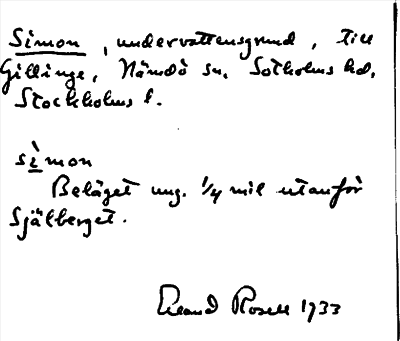 Simon, undervattensgrund, till
Gillinge, Nämdö sn, Sotholms hd,
Stockholms l.
sìmon
Beläget ung. 1/4 mil utanför
Själberget.
Erland Rosell 1933